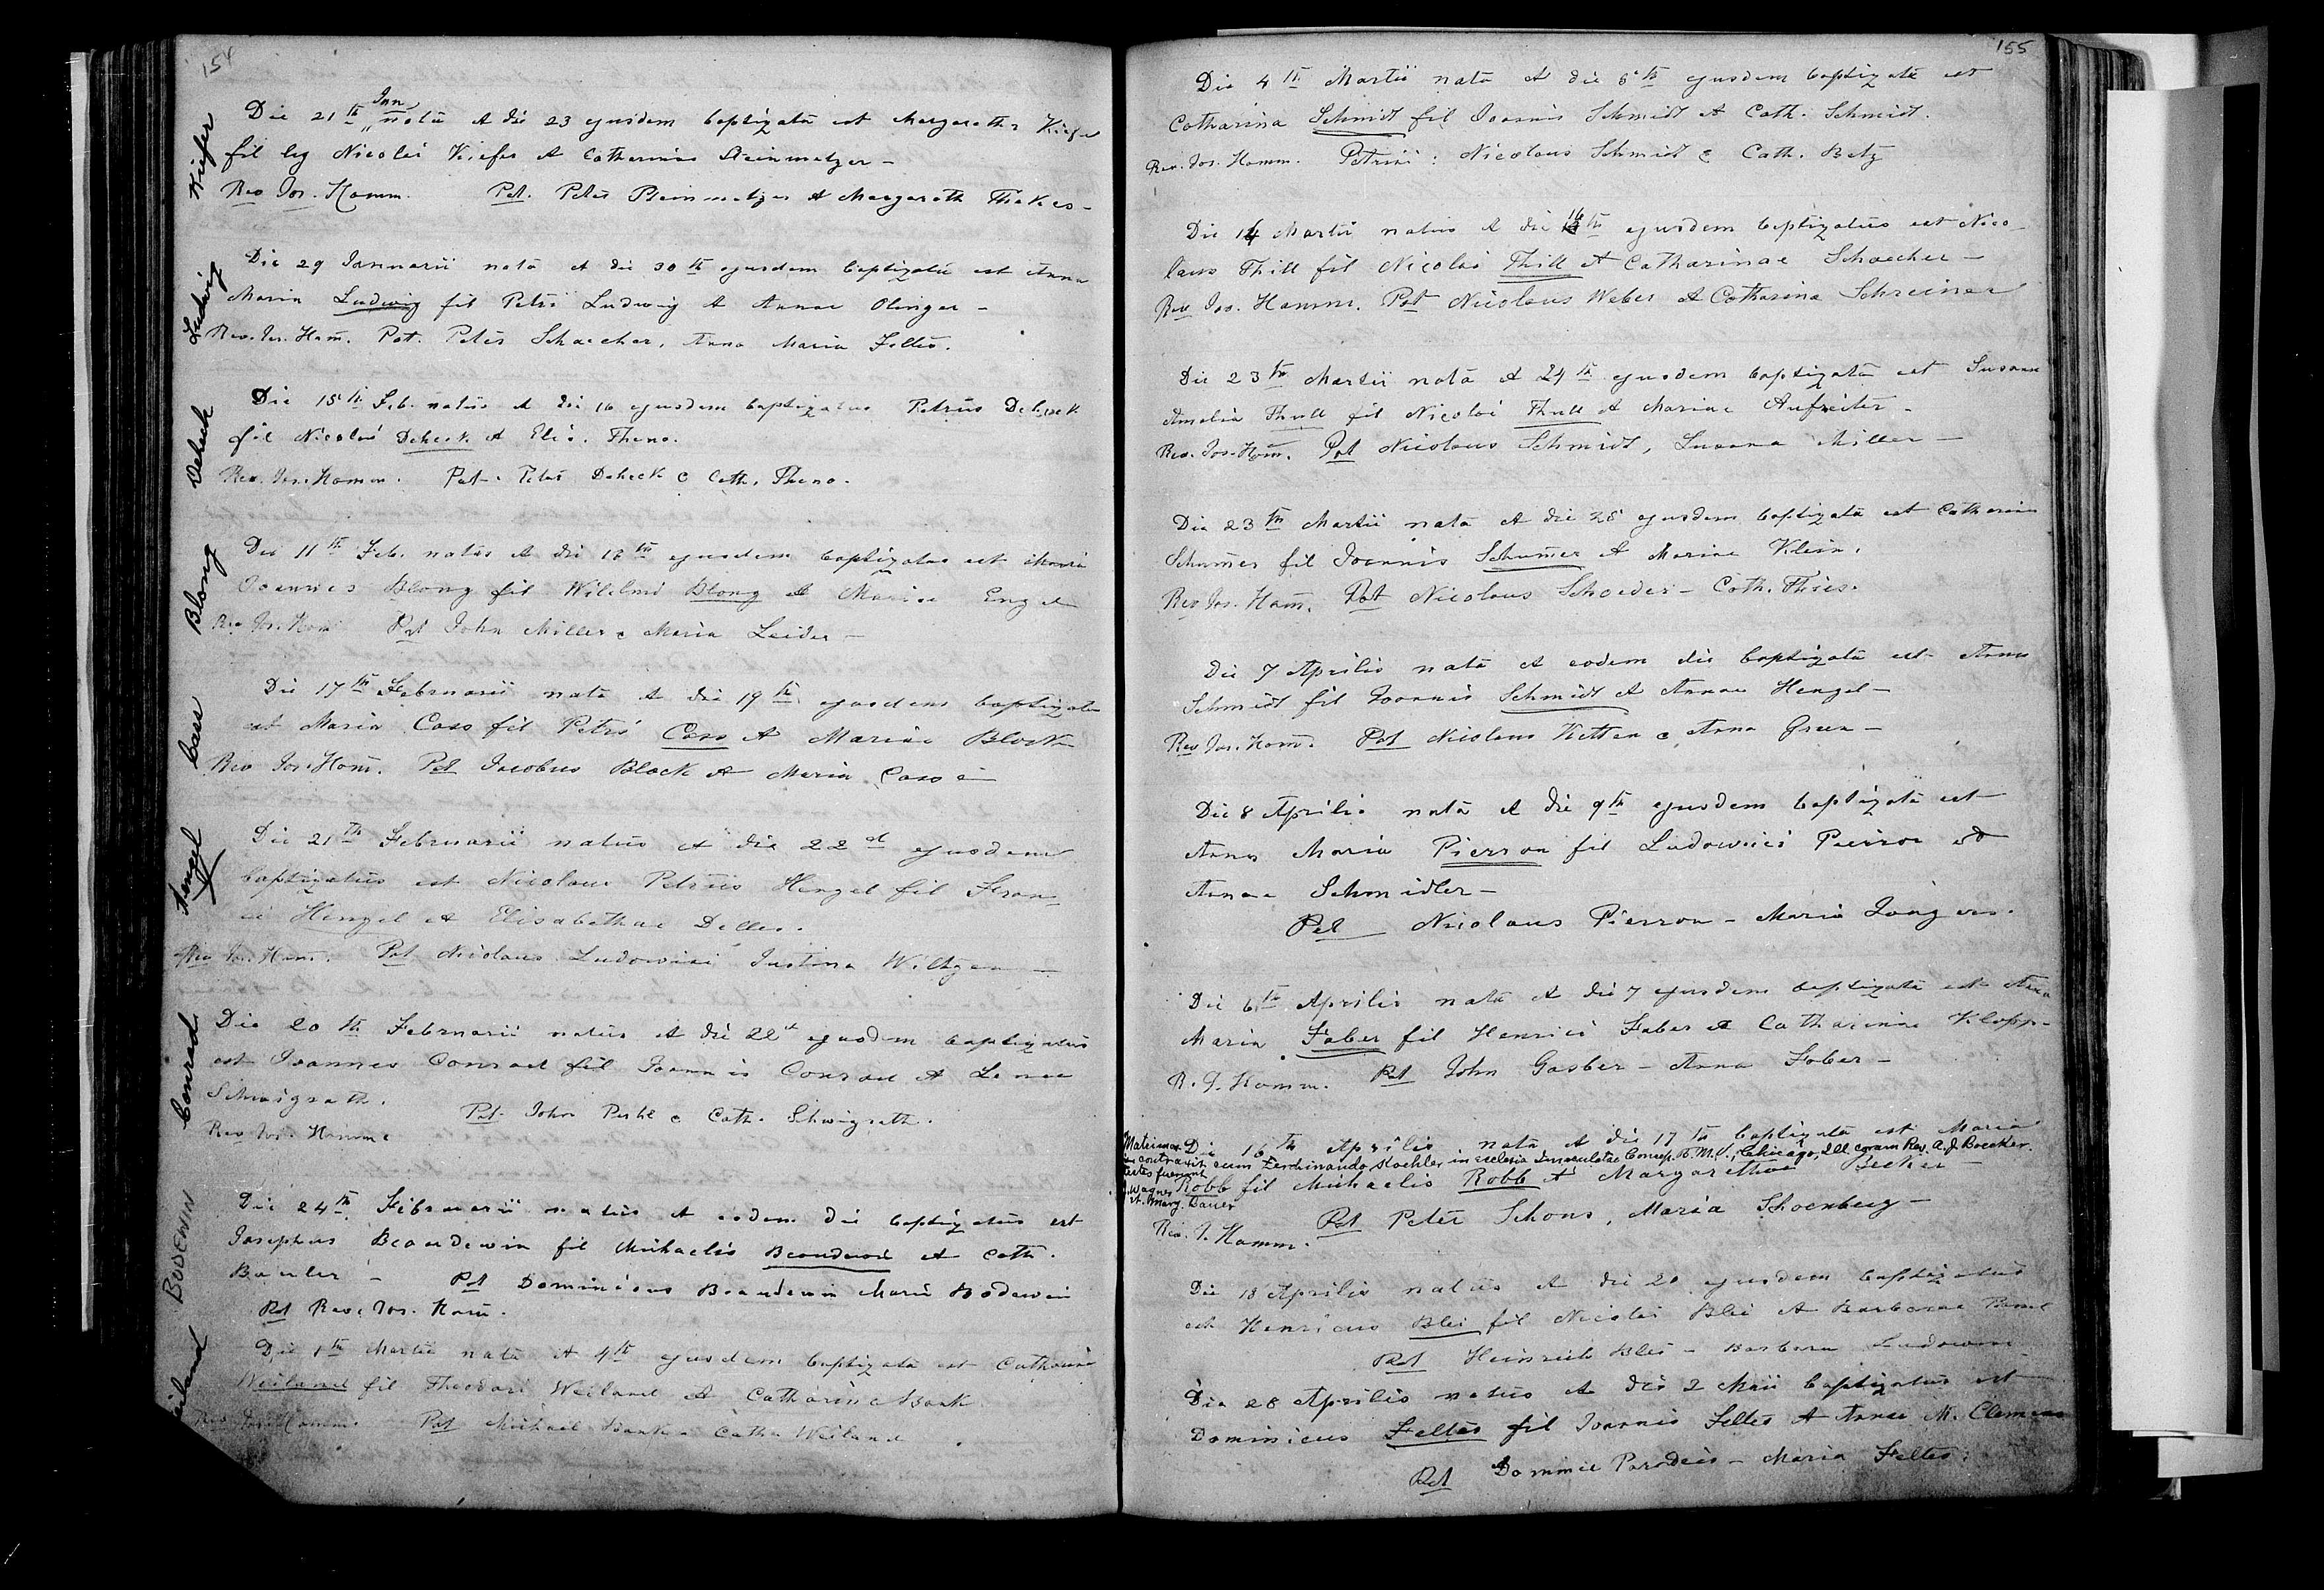 154
Kiefer
Die 21th Jan nata et die 23 ejusdem baptizata est Margaretha Kiefer
fil leg Nicolai Kiefer et Catharinae Steinmetzer -
Rev Jos. Hamm. Pat. Peter Steinmetzer et Margareth Thekes -
Ludwig
Die 29 Januarii nata et die 30th ejusdem baptizata est Anna
Maria Ludwig fil Petri Ludwig et Annae Olinger -
Rev. Jos. Ham. Pat. Peter Schaecher, Anna Maria Feltes.
Deheck
Die 15th Feb. natus et die 16 ejusdem baptizatus Petrus Deheck
fil Nicolai Deheck et Elis. Theno.
Rev. Jos. Hamm. Pat. Peter Deheck & Cath. Theno.
Blong
Die 11th Feb. natus et die 12th ejusdem baptizatus est
Joannes Blong fil Wilelmi Blong et Mariae Engel
Rev Jos. Ham Pat John Miller & Maria Leider -
Cass
Die 17th Februarii nata et die 19th ejusdem baptizata
est Maria Cass fil Petri Cass et Mariae Block
Rev Jos. Ham. Pat Jacobus Block et Maria Cass
Hengel
Die 21th Februarii natus et die 22d ejusdem
baptizatus est Nicolaus Petrus Hengel fil Fran
ci Hengel et Elisabethae Delles.
Rev Jos. Ham. Pat Nicolaus Ludowisi Justina Wiltgen -
Conrad
Die 20th Februarii natus et die 22d ejusdem baptizatus
est Joannes Conrad fil Joannis Conrad et Lenae
Schweigrath.
Pat. John & Cath. Schweigrath.
Rev Jos. Hamm
BODEWIN
Die 24th Februarii natus et eodem die baptizatus est
Josephus Beaudewin fil Michaelis Beaudewin et Cath.
Bauler - Pat Dominicus Beaudewin Maria Bodewin
Pat Rev. Jos. Ham.
eiland
Die 1th Martii nata et 4th ejusdem baptizata est Catharina
Weiland fil Theodori Weiland et Catharina Bank
Rev Jos. Hamm. Pat Michael Bank - Cath. Weiland
155
Die 4th Martii nata et die 5th ejusdem baptizata est
Catharina Schmidt fil Joannis Schmidt et Cath. Schmidt.
Rev. Jos. Hamm. Patrini: Nicolaus Schmidt & Cath. Betz
Die 14 Martii natus et die 16th ejusdem baptizatus est Nico
laus Thill fil Nicolai Thill et Catharinae Schaecher -
Rev Jos. Hamm. Pat Nicolaus Weber et Catharina Schreiner
Die 23th Martii nata et 24th ejusdem baptizata est Susana
Amalia Thull fil Nicolai Thull et Mariae Aufreiter -
Rev. Jos. Ham. Pat Nicolaus Schmidt, Susana Miller -
Die 23th Martii nata et die 25 ejusdem baptizata est Catharina
Schumer fil Joannis Schumer et Mariae Klein.
Rev Jos. Ham. Pat Nicolaus Schoeder - Cath. Thies.
Die 7 Aprilis nata et eodem die baptizata est Anna
Schmidt fil Joannis Schmidt et Annae Hengel -
Rev Jos. Ham. Pat Nicolaus Ketten & Anna Green -
Die 8 Aprilis nata et die 9th ejusdem baptizata est
Anna Maria Pierron fil Ludowici Pierron et
Annae Schmidler -
Pat Nicolaus Pierron - Maria Jungers.
Die 6th Aprilis nata et die 7 ejusdem baptizata est Anna
Maria Faber fil Henrici Faber et Catharinae Klopp -
R. J. Hamm. Pat John Gasber - Anna Faber -
Die 16th Aprilis nata et die 17th baptizata est Maria
Matrimon
contraxit cum Ferdinando Koehler in ecclesia Immaculatae Concep. B.M.V., Chicago, Ill. coram Rev. A. J. Boecker.
testes fuerunt
Robb fil Michaelis Robb et Margarethae Becker -
J. Wagner
et Marg. Dauer
Pat Peter Schons, Maria Schoenberg -
Rev. J. Hamm.
Die 18 Aprilis natus et die 20 ejusdem baptizatus
est Henricus Blei fil Nicolai Blei et Barbarae
Pat Heinrich Blei - Barbara Ludowissi
Die 28 Aprilis natus et die 2 Maii baptizatus est
Dominicus Feltes fil Joannis Feltes et Annae M. Clemens
Pat Dominic Paradeis - Maria Feltes.